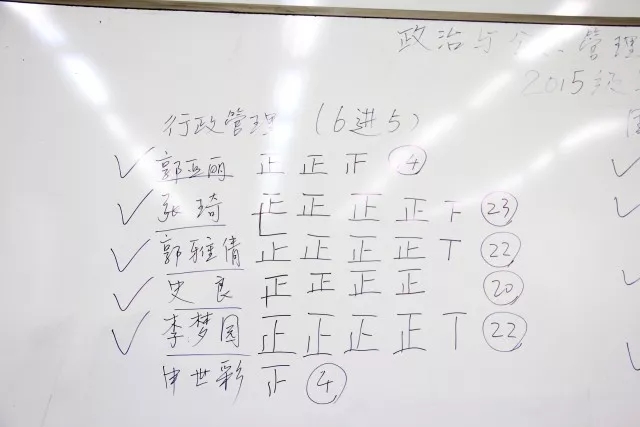 政治与公共管理
2015级
行政管理（6进5）
郭亚丽 正 正 正 14
张琦 正 正 正 正 下 23
郭雅倩 正 正 正 正 丅 22
史良 正 正 正 正 20
李梦园 正 正 正 正 丅 22
申世彩 正 4